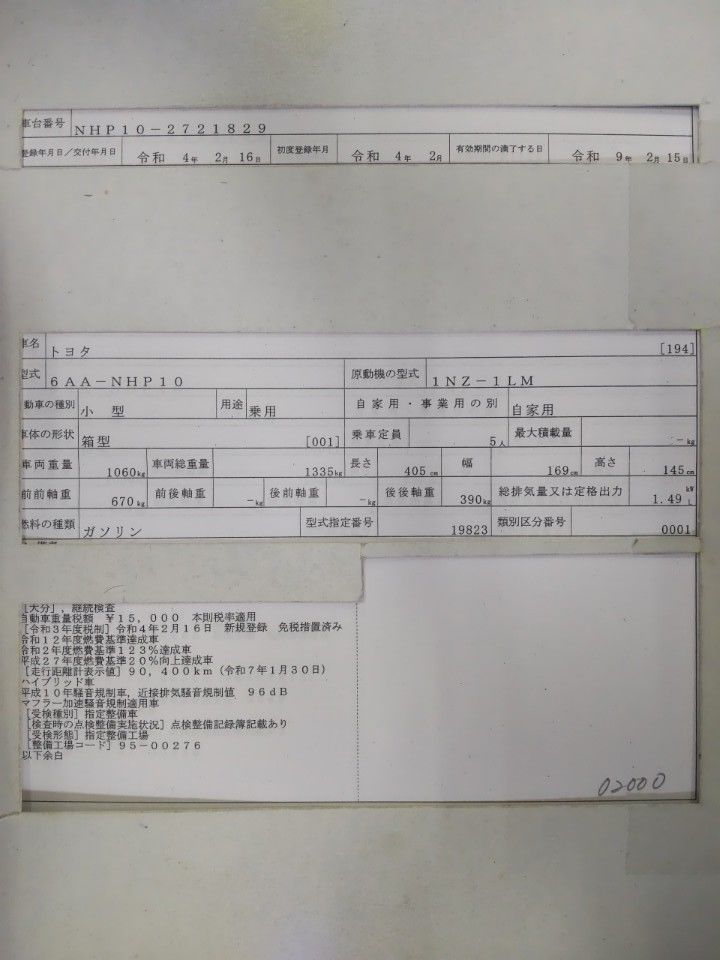 車台番号 NHP10-2721829
登録年月日/交付年月日 令和 4年 2月 16日 初度登録年月 令和 4年 2月 有効期間の満了する日 令和 9年 2月 15日
車名 トヨタ [194]
型式 6AA-NHP10 原動機の型式 1NZ-1LM
動車の種別 小型 用途 乗用 自家用・事業用の別 自家用
車体の形状 箱型 [001] 乗車定員 5人 最大積載量 -kg
車両重量 1060kg 車両総重量 1335kg 長さ 405cm 幅 169cm 高さ 145cm
前前軸重 670kg 前後軸重 -kg 後前軸重 -kg 後後軸重 390kg 総排気量又は定格出力 1.49 kW L
燃料の種類 ガソリン 型式指定番号 19823 類別区分番号 0001
[大分],継続検査
自動車重量税額 ¥15,000 本則税率適用
[令和3年度税制]令和4年2月16日 新規登録 免税措置済み
令和12年度燃費基準達成車
令和2年度燃費基準123%達成車
平成27年度燃費基準20%向上達成車
[走行距離計表示値]90,400km(令和7年1月30日)
ハイブリッド車
平成10年騒音規制車,近接排気騒音規制値 96dB
マフラー加速騒音規制適用車
[受検種別]指定整備車
[検査時の点検整備実施状況]点検整備記録簿記載あり
[受検形態]指定整備工場
[整備工場コード]95-00276
以下余白
02000